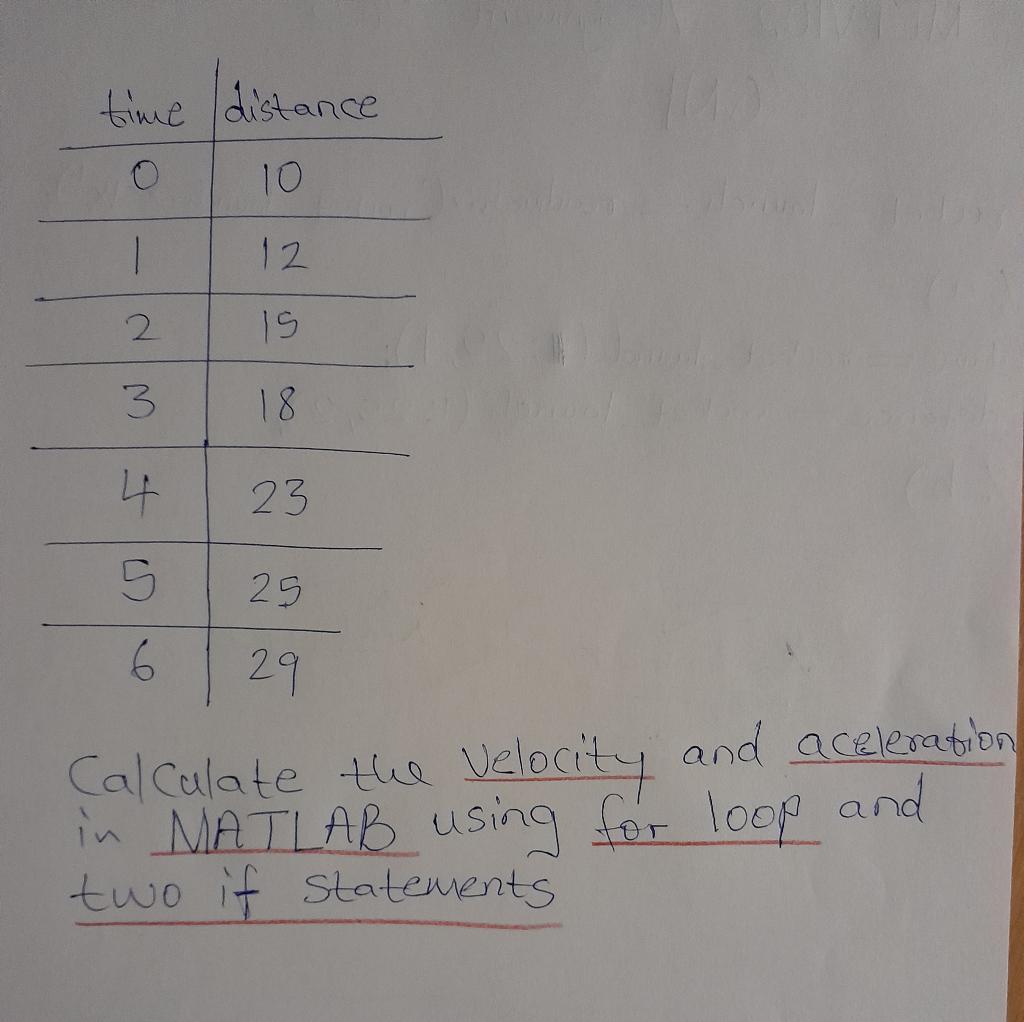 time distance
0 10
1 12
2 15
3 18
4 23
5 25
6 29
Calculate the velocity and aceleration
in MATLAB using for loop and
two if statements